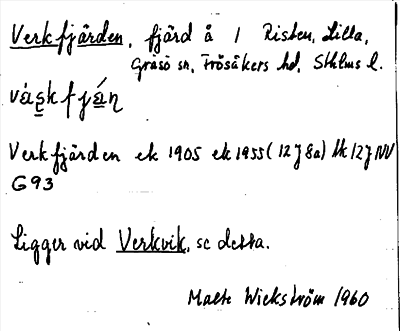 Verkfjärden, fjärd å 1 Risten, Lilla,
Gräsö sn, Frösåkers hd, Sthlms l.
Verkfjärden ek 1905 ek 1955 (12J 8a) Hk 12J NV
G93
Ligger vid Verkvik, se detta.
Malte Wickström 1960